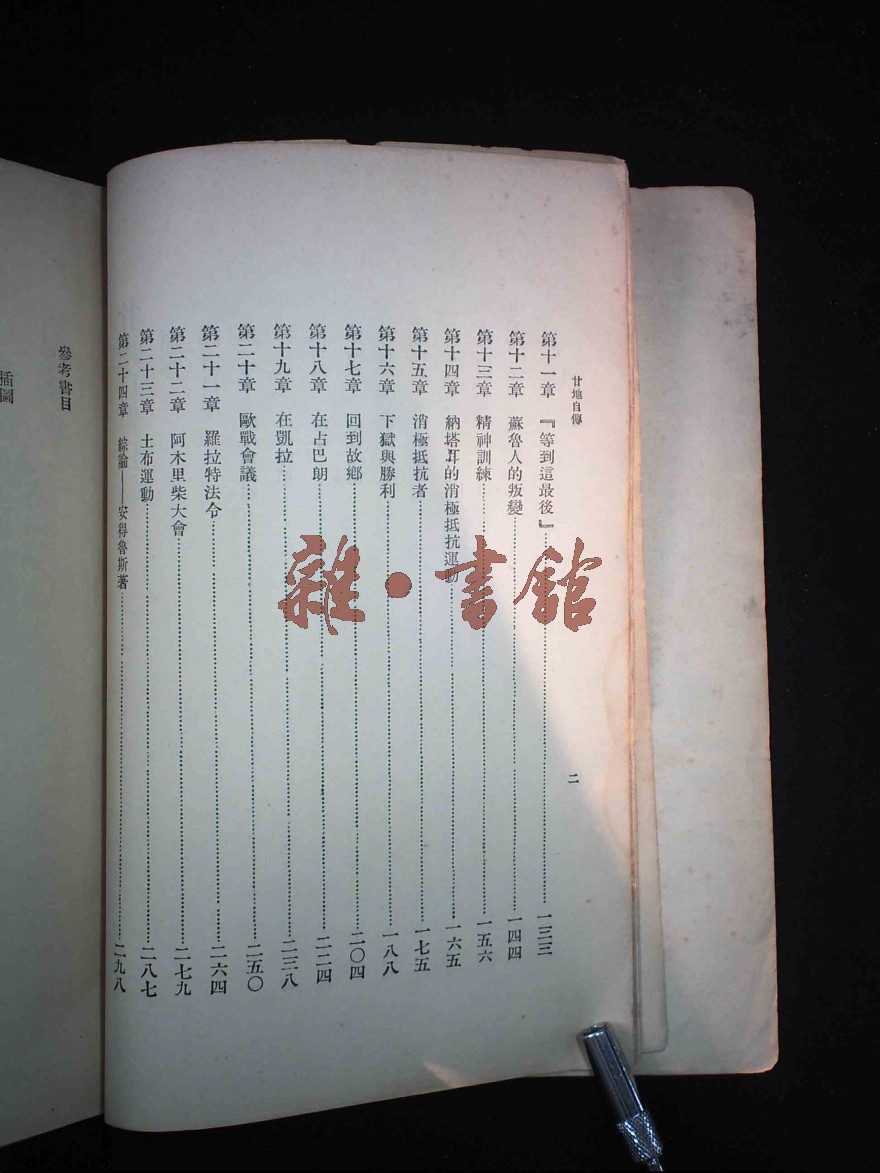 甘地自傳
二
第十一章 『等到這最後』 一三三
第十二章 蘇魯人的叛變 一四四
第十三章 精神訓練 一五六
第十四章 納塔耳的消極抵抗運動 一六五
第十五章 消極抵抗者 一七五
第十六章 下獄與勝利 一八八
第十七章 回到故鄉 二〇四
第十八章 在占巴朗 二二四
第十九章 在凱拉 二三八
第二十章 歐戰會議 二五〇
第二十一章 羅拉特法令 二六四
第二十二章 阿木里柴大會 二七九
第二十三章 土布運動 二八七
第二十四章 綜論——安得魯斯著 二九八
參考書目
插圖
雜·書館